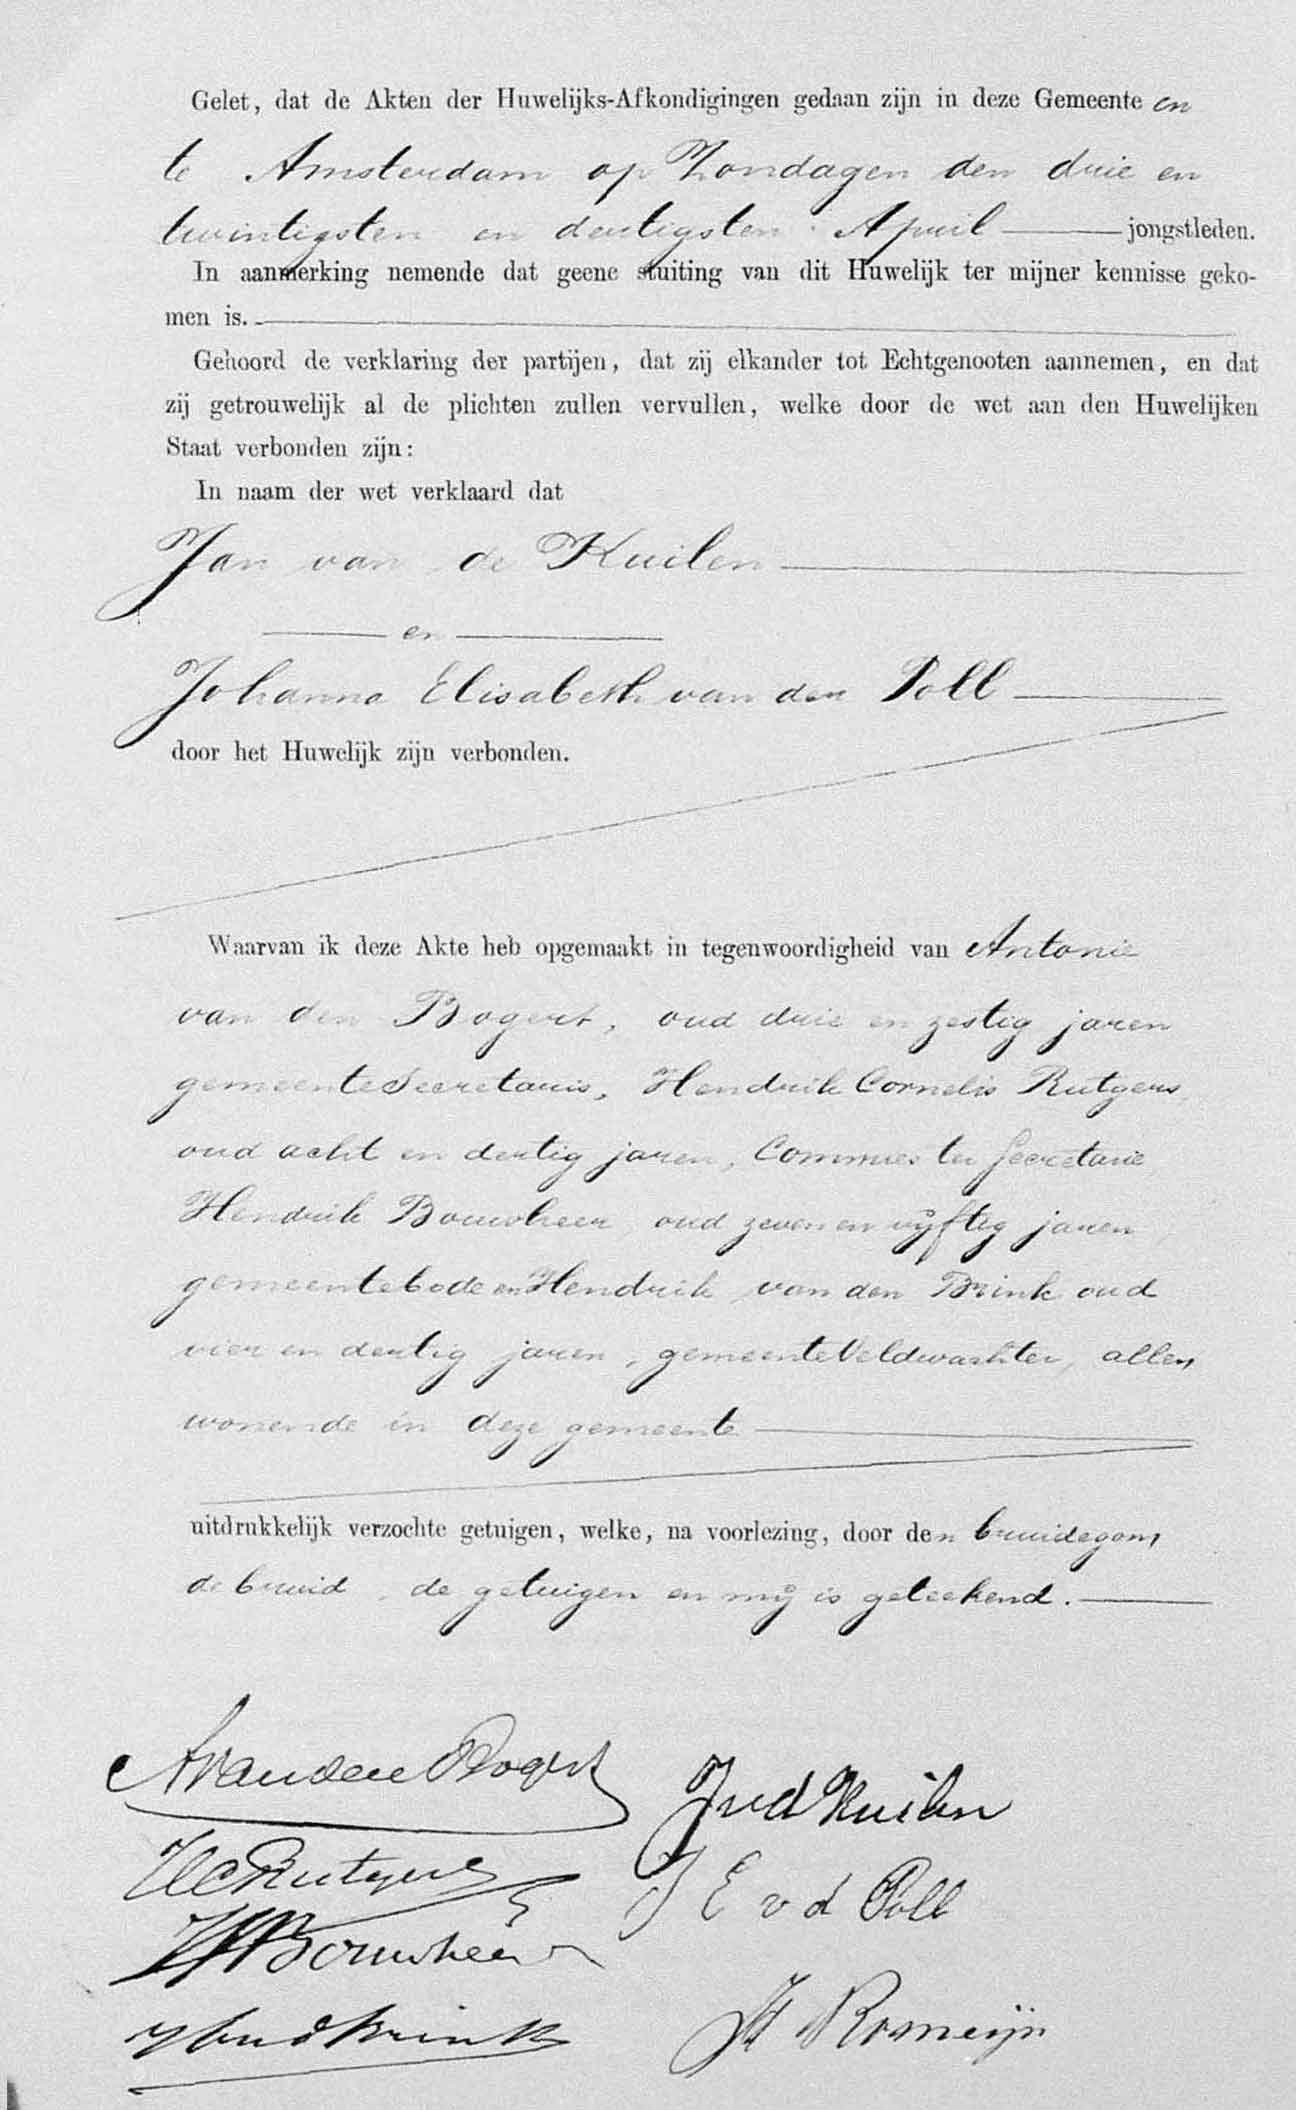 Gelet, dat de Akten der Huwelijks-Afkondigingen gedaan zijn in deze Gemeente en
te Amsterdam op Zondagen den drie en
twintigsten en dertigsten April jongstleden.
In aanmerking nemende dat geene stuiting van dit Huwelijk ter mijner kennisse geko-
men is.
Gehoord de verklaring der partijen, dat zij elkander tot Echtgenooten aannemen, en dat
zij getrouwelijk al de plichten zullen vervullen, welke door de wet aan den Huwelijken
Staat verbonden zijn:
In naam der wet verklaard dat
Jan van de Kuilen
en
Johanna Elisabeth van den Poll
door het Huwelijk zijn verbonden.
Waarvan ik deze Akte heb opgemaakt in tegenwoordigheid van Antonie
van den Bogert, oud drie en zestig jaren
gemeente Secretaris, Hendrik Cornelis Rutgers
oud acht en dertig jaren, Commies ter Secretarie
Hendrik Bouwheer oud zeven en vijftig jaren,
gemeentebode en Hendrik van den Brink oud
vier en dertig jaren, gemeente Veldwachter, allen
wonende in deze gemeente
uitdrukkelijk verzochte getuigen, welke, na voorlezing, door den bruidegom,
de bruid, de getuigen en mij is geteekend.
A van den Bogert
JvdKuilen
HCRutgers
J E v d Poll
H Bouwheer
HvndBrink
H Romeijn